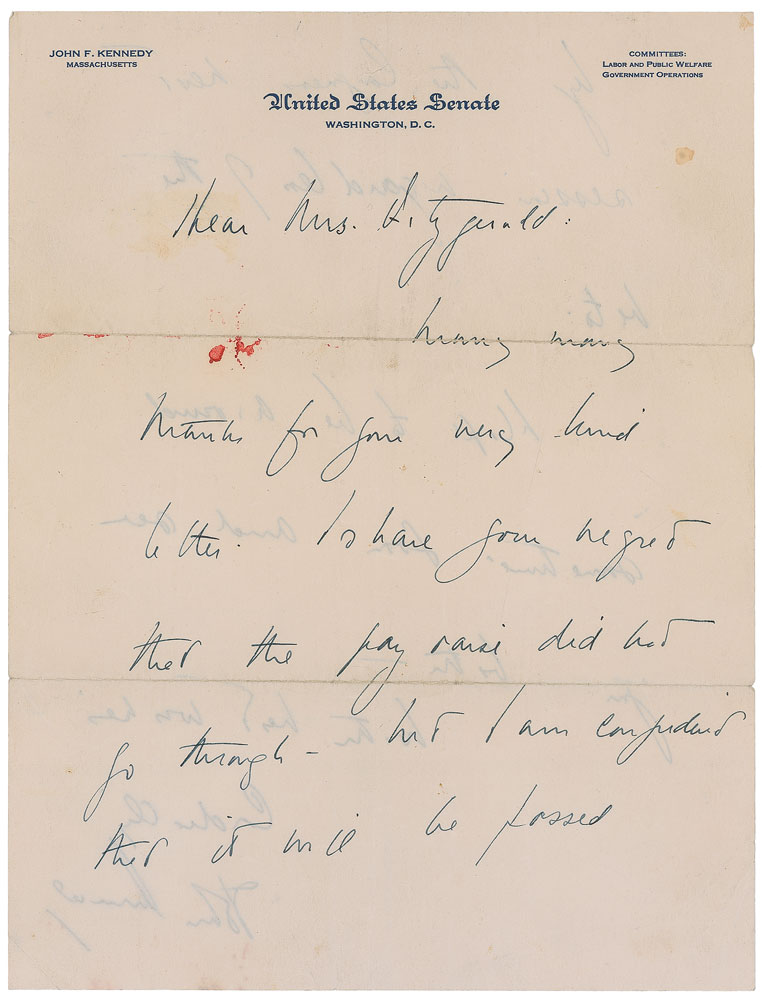 JOHN F. KENNEDY
MASSACHUSETTS
COMMITTEES:
LABOR AND PUBLIC WELFARE
GOVERNMENT OPERATIONS
United States Senate
WASHINGTON, D. C.
Dear Mrs. Fitzgerald:
Many many
thanks for your very kind
letter. I share your regret
that the pay raise did not
go through – but I am confident
that it will be passed